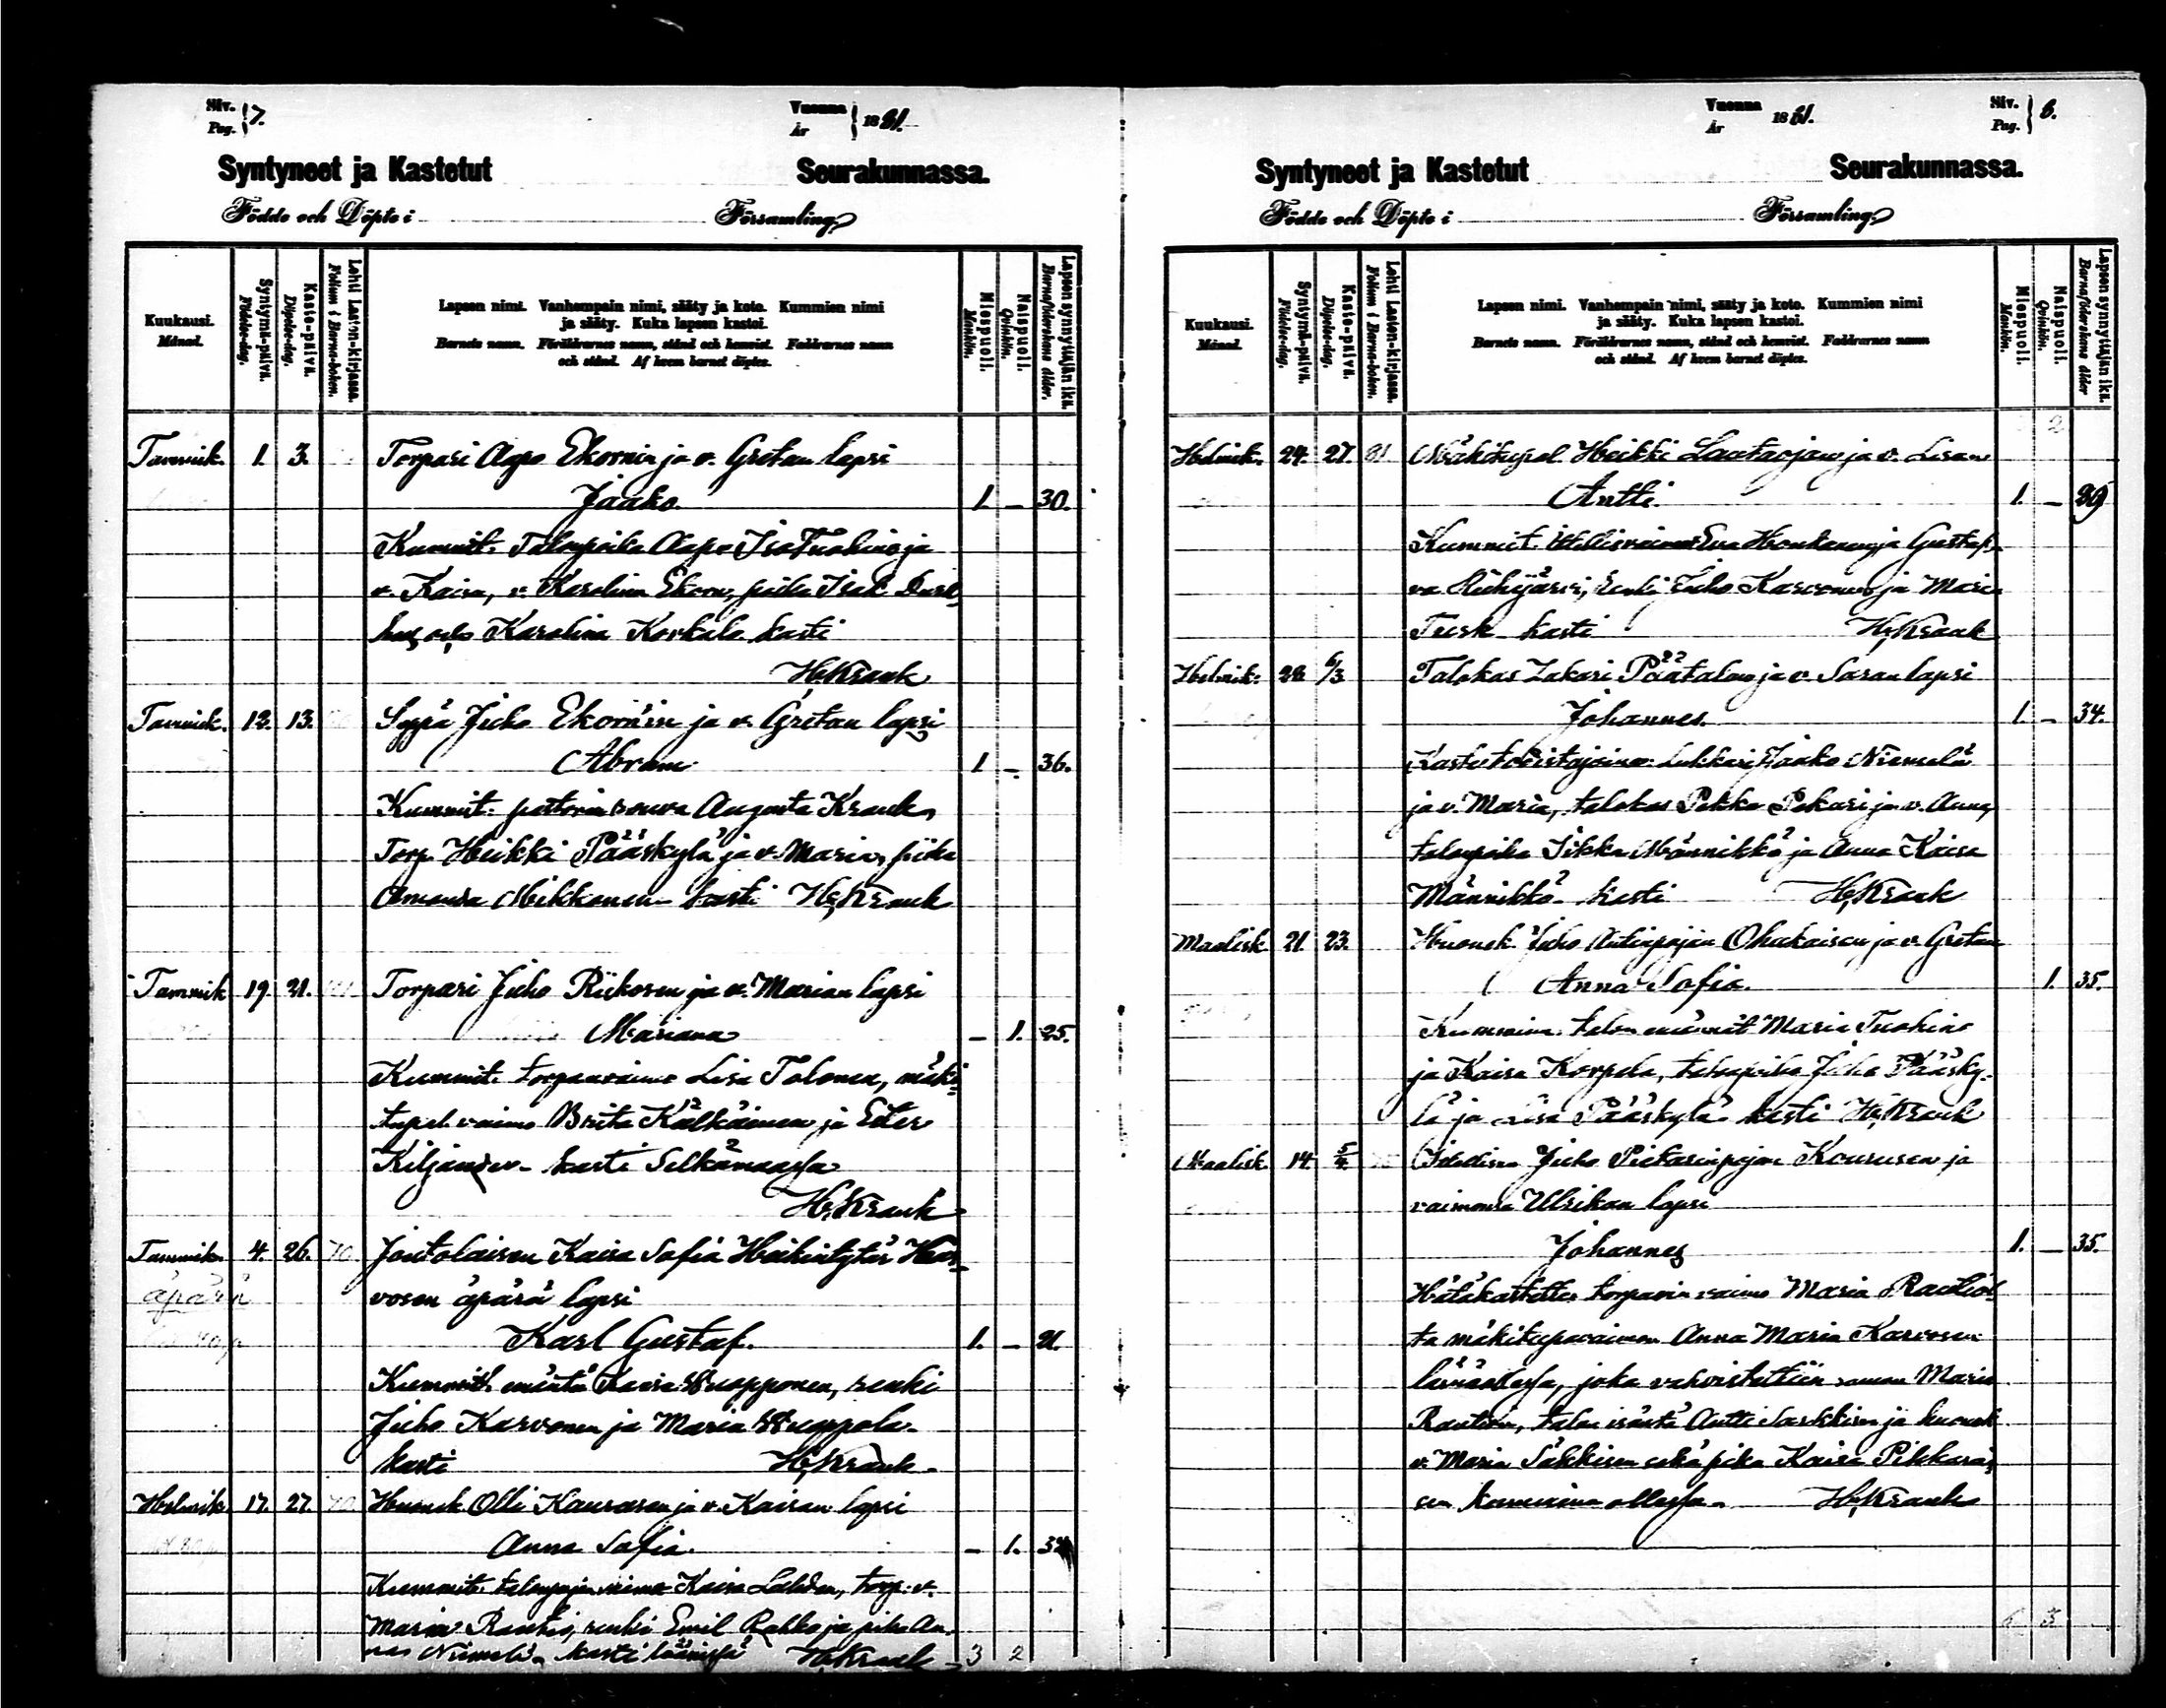 Siv. Pag. } 7.
Vuonna År } 1881.
Syntyneet ja Kastetut Seurakunnassa.
Födde och Döpte i Församling
Kuukausi. Månad.
Syntymä-päivä. Födelse-dag.
Kaste-päivä. Döpelse-dag.
Lehti Lasten-kirjassa. Folium i Barna-boken.
Lapsen nimi. Vanhempain nimi, sääty ja koto. Kummien nimi
ja sääty. Kuka lapsen kastoi.
Barnets namn. Föräldrarnes namn, stånd och hemvist. Faddrarnes namn
och stånd. Af hvem barnet döptes.
Miespuoli. Mankön.
Naispuoli. Qvinkön.
Lapsen synnyttäjän ikä. Barnaföderskans ålder.
Tammik. 1. 3. Torpari Aapo Ekornin ja v. Gretan lapsi
Jaako. 1. – 30.
Kummit. Talonpoika Aapo IsoTuohino ja
v. Kaisa, v. Karolina Ekorn, piika Isak
Karolina Korkala kasti
H. Krank
Tammik. 12. 13. Seppä Juho Ekornin ja v. Gretan lapsi
Abram 1 – 36.
Kummit. pastorin rouva Augusta Krank,
Torp. Heikki Pääskylä ja v. Maria, piika
Amanda Mikkonen kasti H. Krank
Tammik 19. 21. Torpari Juho Riikosen ja v. Marian lapsi
Mariana – 1. 25.
Kummit. torparivaimo Lisa Tolonen, mäki-
tupal vaimo Brita Kälkäinen ja Ester
Kiljander kasti Selkämaassa
H. Krank
Tammik. 4. 26. 70. Joutolaisen Kaisa Sofia Heikintytär
äpärä
vosen äpärä lapsi
Karl Gustaf. 1. – 21.
Kummit emäntä Kaisa Huopponen, renki
Juho Karvonen ja Maria Huoppola
kasti H. Krank
Helmik. 17. 27. 70. Huonek Olli Kaurasen ja v. Kaisan lapsi
Anna Sofia. – 1. 32
Kummit. talonpojan vaimo Kaisa Lahden, torp. v.
Maria Rautio, renki Emil Rahko ja piika An-
nas Niemelä. kasti läänissä H. Krank 3 2
Siv. Pag. } 8.
Vuonna År 1881.
Syntyneet ja Kastetut Seurakunnassa.
Födde och Döpte i Församling
Kuukausi. Månad.
Syntymä-päivä. Födelse-dag.
Kaste-päivä. Döpelse-dag.
Lehti Lasten-kirjassa. Folium i Barna-boken.
Lapsen nimi. Vanhempain nimi, sääty ja koto. Kummien nimi
ja sääty. Kuka lapsen kastoi.
Barnets namn. Föräldrarnes namn, stånd och hemvist. Faddrarnes namn
och stånd. Af hvem barnet döptes.
Miespuoli. Mankön.
Naispuoli. Qvinkön.
Lapsen synnyttäjän ikä. Barnaföderskans ålder
Helmik. 24. 27. 81 Mäkitupal. Heikki Lautaojan ja v. Lisan
Antti. 1. – 29
Kummit. Eva Honkanen ja Gusta-
va Riihijärvi, renki Juho Karvonen ja Maria
Tersk kasti H. Krank
Helmik. 28 6/3 Talokas Zakari Päätalon ja v. Saran lapsi
Johannes. 1. – 34.
Kaste todistajoina lukkari Jaako Niemelä
ja v. Maria, talokas Pekka Pekari ja v. Anna,
talonpoika Iikka Männikkö ja Anna Kaisa
Männikkö kasti H. Krank
Maalisk 21. 23. Huonek Juho Antinpojan Ohukaisen ja v. Gretan
Anna Sofia. 1. 35.
Kummina talon emännät Maria Tuohino
ja Kaisa Korpela, talonpoika Juho Pääsky-
lä ja Lisa Pääskylä kasti H. Krank
Maalisk 14 5/4 Juho Pickarinpojan Kourusen ja
vaimonsa Ulrikan lapsi
Johannes 1. – 35.
Hätäkastettu torparin vaimo Maria Rautiol-
ta mäkitupavaimon Anna Maria Karvosen
läsnäollessa, joka vahvistettiin saman Maria
Raution, talon isäntä Antti Sarkkisen ja huonek
v. Maria Säkkisen sekä piika Kaisa Pikkarai-
sen kummina ollessa. H. Krank
6 3